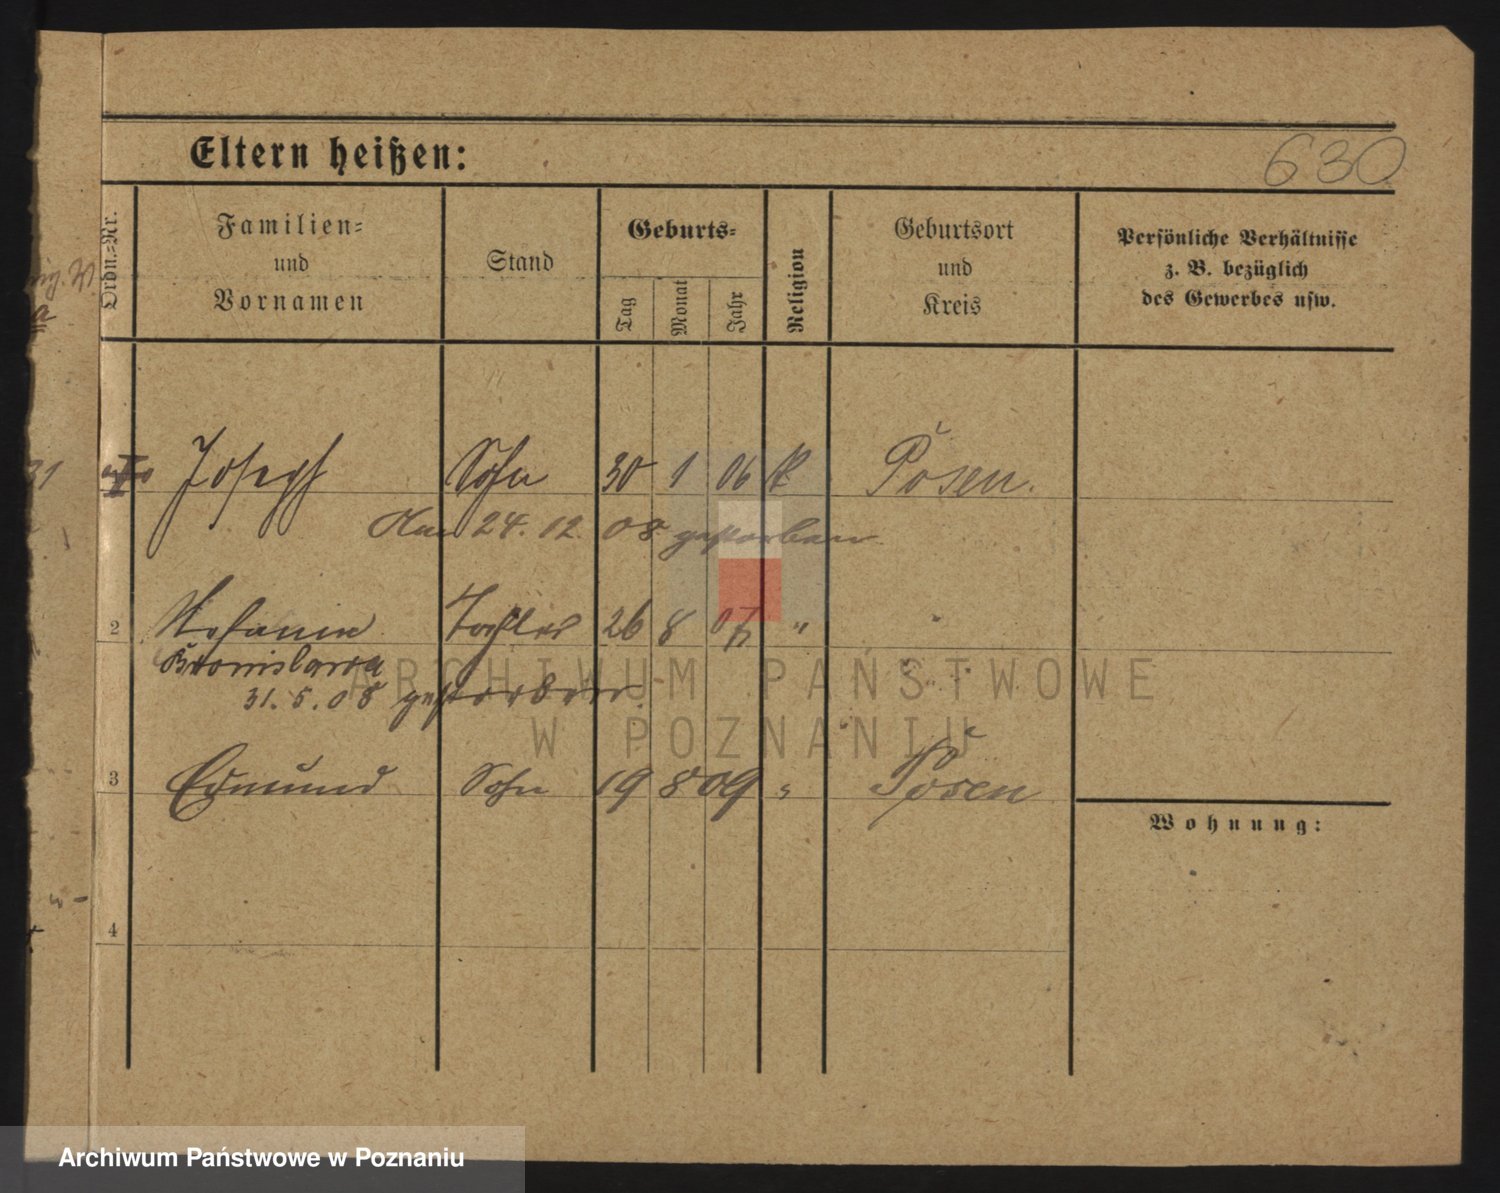 Eltern heißen:
630
Ordn.-Nr.
Familien- und Vornamen
Stand
Geburts-
Tag
Monat
Jahr
Religion
Geburtsort und Kreis
Persönliche Verhältnisse
z. B. bezüglich
des Gewerbes usw.
Joseph Sohn 30 1 06 k Posen.
Am 24. 12. 08 gestorben
2 Stefanie Tochter 26 8 07 "
Bronislawa
31. 5. 08 gestorben.
ARCHIWUM PAŃSTWOWE
W POZNANIU
3 Edmund Sohn 19 8 09 " Posen
Wohnung:
4
Archiwum Państwowe w Poznaniu